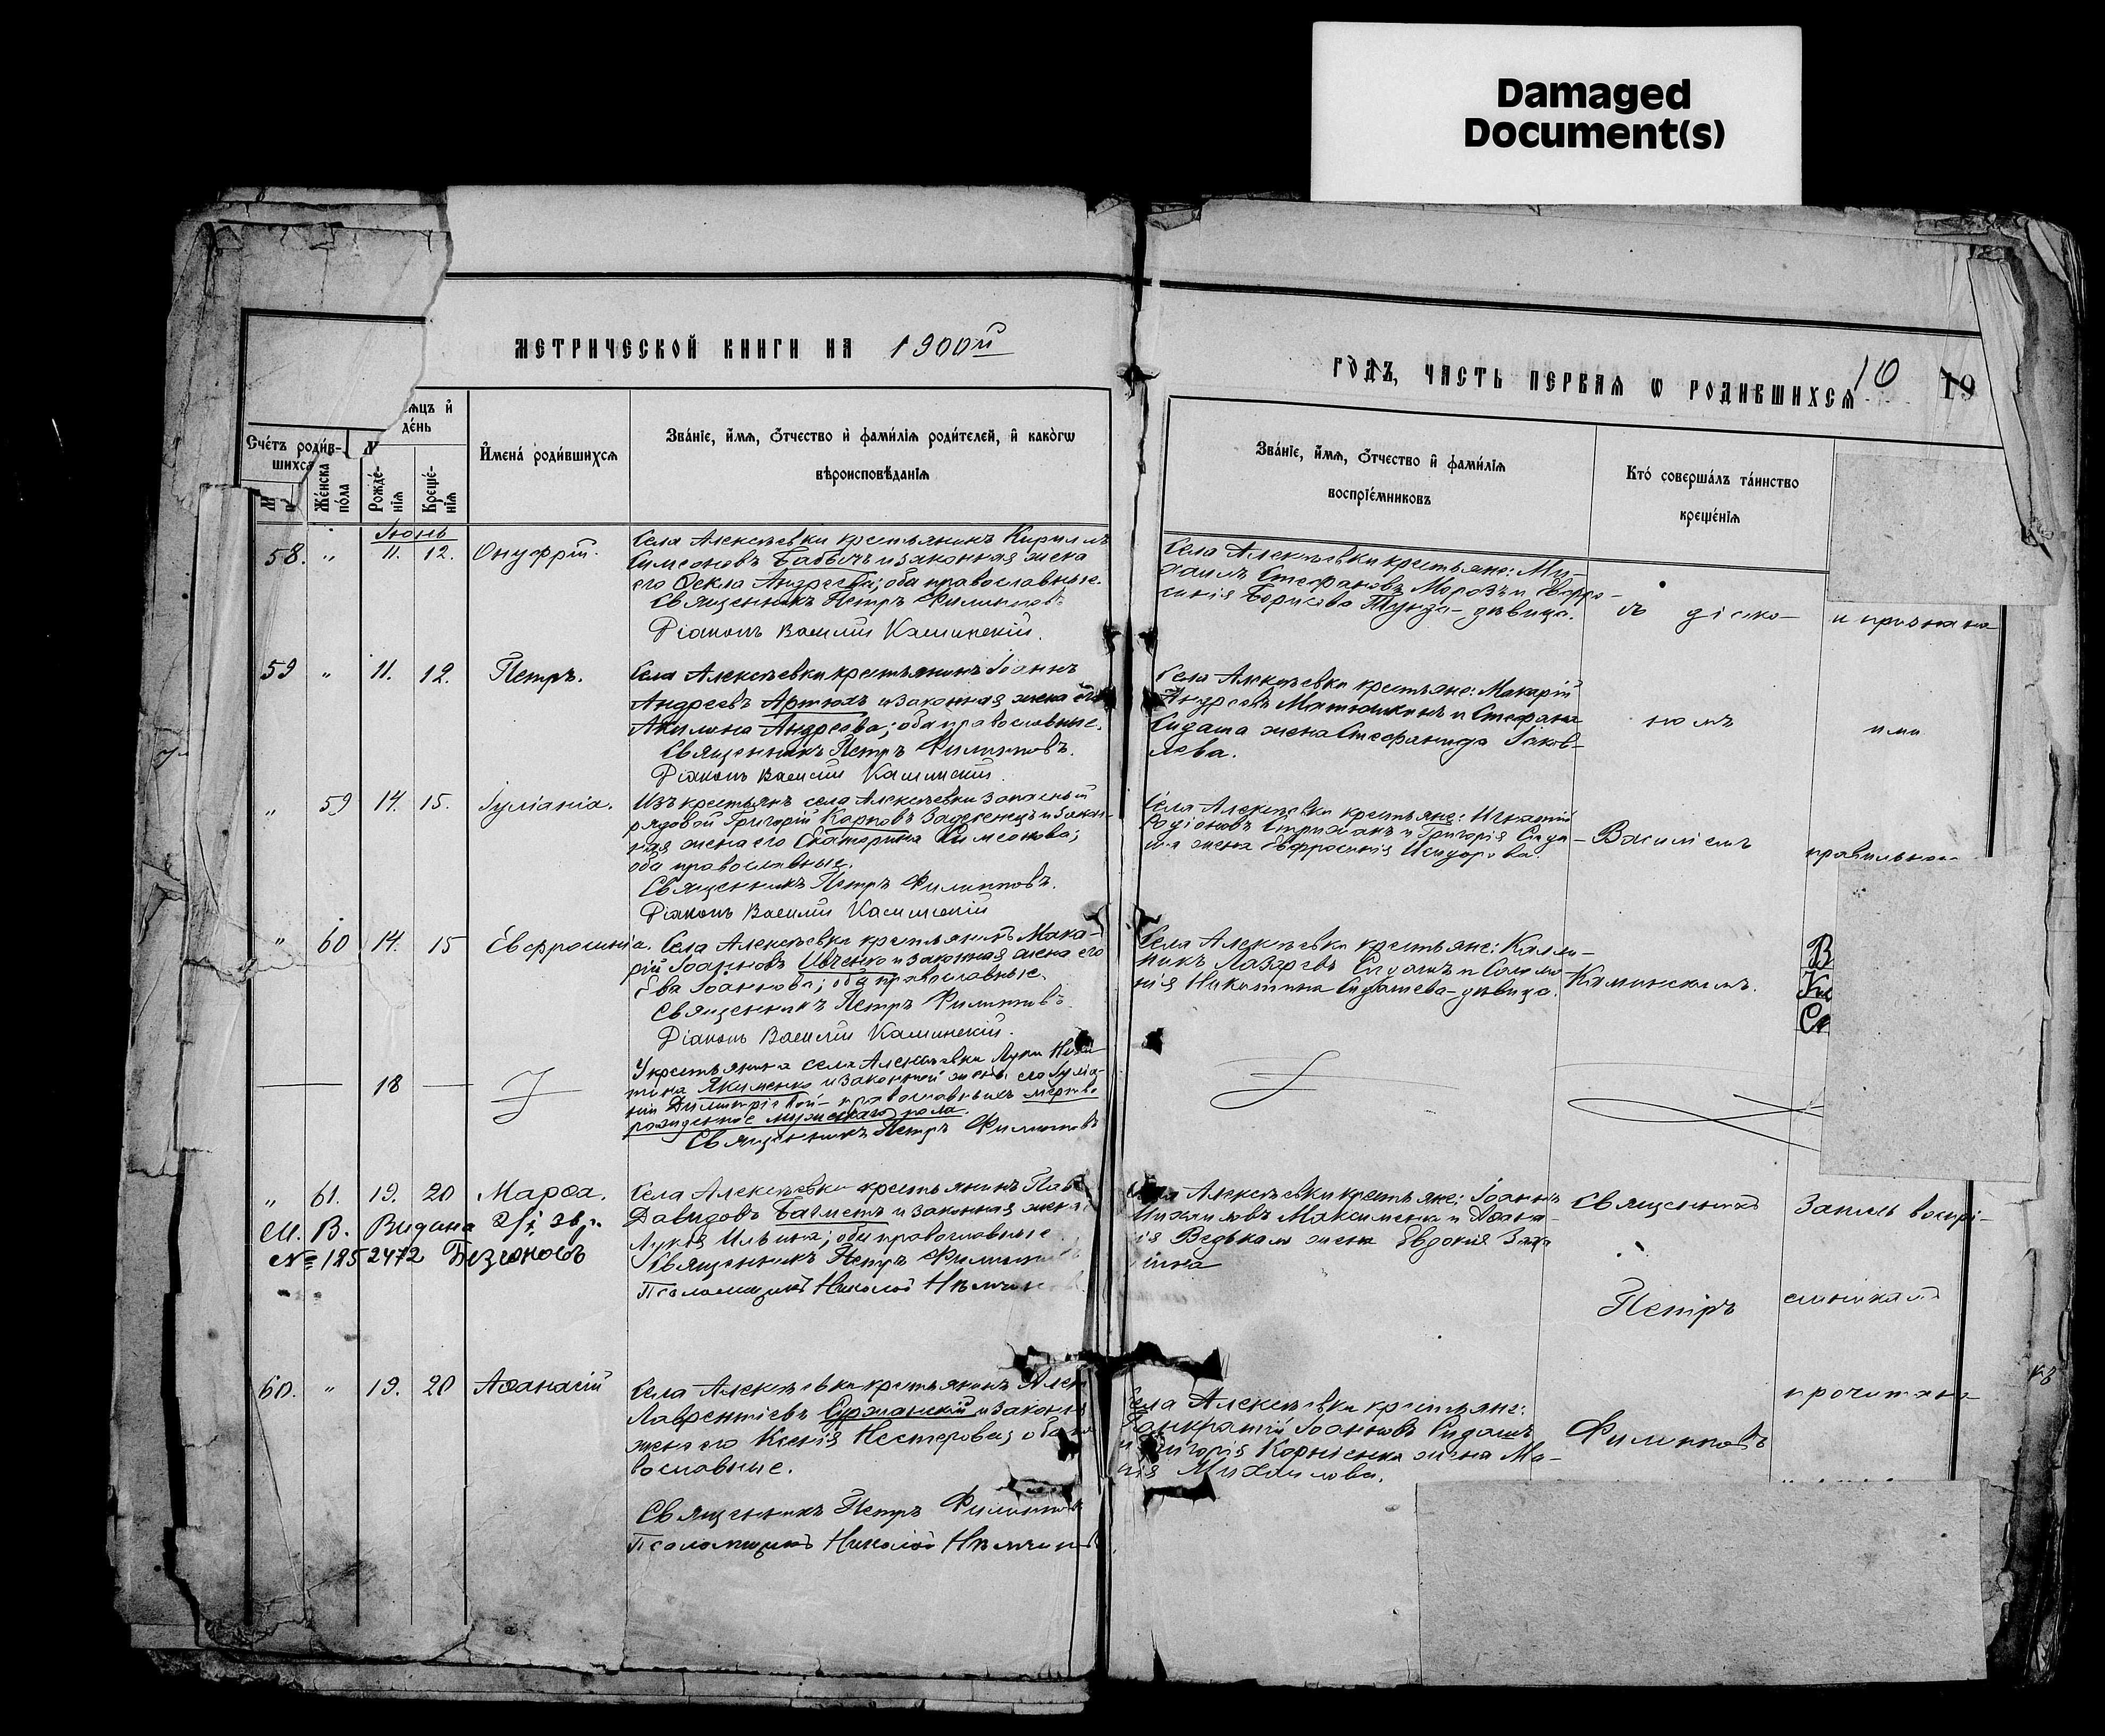 Damaged
Document(s)
МЕТРИЧЕСКОЙ КНИГИ НА 1900й
ГОДЪ, ЧАСТЬ ПЕРВАЯ Ѡ РОДИВШИХСЯ
10 19
Счётъ роди́в-
шихса
Же́нска по́ла
де́нь
Рожде́-
нїѧ
Креще́-
нїѧ
И҆мена̀ роди́вшихсѧ
Зва́нїе, и҆́мѧ, ѻ҆́тчество и҆ фами́лїѧ роди́телей, и҆ како́гѡ
вѣроисповѣ́данїѧ
Зва́нїе, и҆́мѧ, ѻ҆́тчество и҆ фами́лїѧ
воспрїе́мниковъ
Кто̀ соверша́лъ та́инство
креще́нїѧ
Іюнь
58. „ 11. 12. Онуфрій.
Села Алексѣевки крестьянинъ Кириллъ
Симеоновъ Бабичъ и законная жена
его Ѳекла Андреева; оба православные.
Священникъ Петръ Филипповъ
Діаконъ Василій Каминскій.
Села Алексѣевки крестьяне: Ми-
хаилъ Стефановъ Морозъ и Евфро-
синія Борисова Тунда - дѣвица.
ъ діако-
и признана
59 „ 11. 12. Петръ.
Села Алексѣевки крестьянинъ Іоаннъ
Андреевъ Артюхъ и законная жена его
Акилина Андреева; оба православные.
Священникъ Петръ Филипповъ.
Діаконъ Василій Каминскій.
Села Алексѣевки крестьяне: Макарій
Андреевъ Матюшкинъ и Стефана
Сидаша жена Стефанида Іаков-
лева.
номъ
ими
„ 59 14. 15. Іуліанія.
Изъ крестьянъ села Алексѣевки запасный
рядовой Григорій Карповъ и закон-
ная жена его Екатерина Симеонова;
оба православные.
Священникъ Петръ Филипповъ.
Діаконъ Василій Каминскій
Села Алексѣевки крестьяне: Игнатій
Родіоновъ и Григорія Сида-
ша жена Евфросинія Исидорова.
Василіемъ
правильною
„ 60 14. 15 Евфросинія.
Села Алексѣевки крестьянинъ Мака-
рій Іоанновъ Ивченко и законная жена его
Ева Іоаннова; оба православные.
Священникъ Петръ Филипповъ
Діаконъ Василій Каминскій.
Села Алексѣевки крестьяне: Калли-
никъ Лазаревъ Сидашъ и Соломо-
нія Никитина Сидашева - дѣвица.
Каминскимъ.
В
Св
18
У крестьянина села Алексѣевки Луки Ники-
тина Якименко и законной жены его Іуліа-
ніи Димитріевой - православныхъ мертво-
рожденное мужескаго пола.
Священникъ Петръ Филипповъ
„ 61. 19. 20 Марѳа.
Села Алексѣевки крестьянинъ Пав
Давидовъ Багметъ и законная жена
Лукія Ильина; оба православные
Священникъ Петръ Филиппов
Псаломщикъ Николай
М. В. Видана
№ 1852472
Села Алексѣевки крестьяне: Іоаннъ
Михаиловъ Максименко и Аѳана-
сія жена Евдокія
Священникъ
Петръ
Запись воспрі-
емниками
60. „ 19. 20 Аѳанасій
Села Алексѣевки крестьянинъ Алек
Лаврентіевъ Суржанскій и законн
жена его Ксенія Нестерова; оба
вославные.
Священникъ Петръ Филиппов
Псаломщикъ Николай
Села Алексѣевки крестьяне:
Панкратій Іоанновъ Сидашъ
и Григорія Корніенка жена Ма-
рія Михаилова.
Филипповъ
прочитана